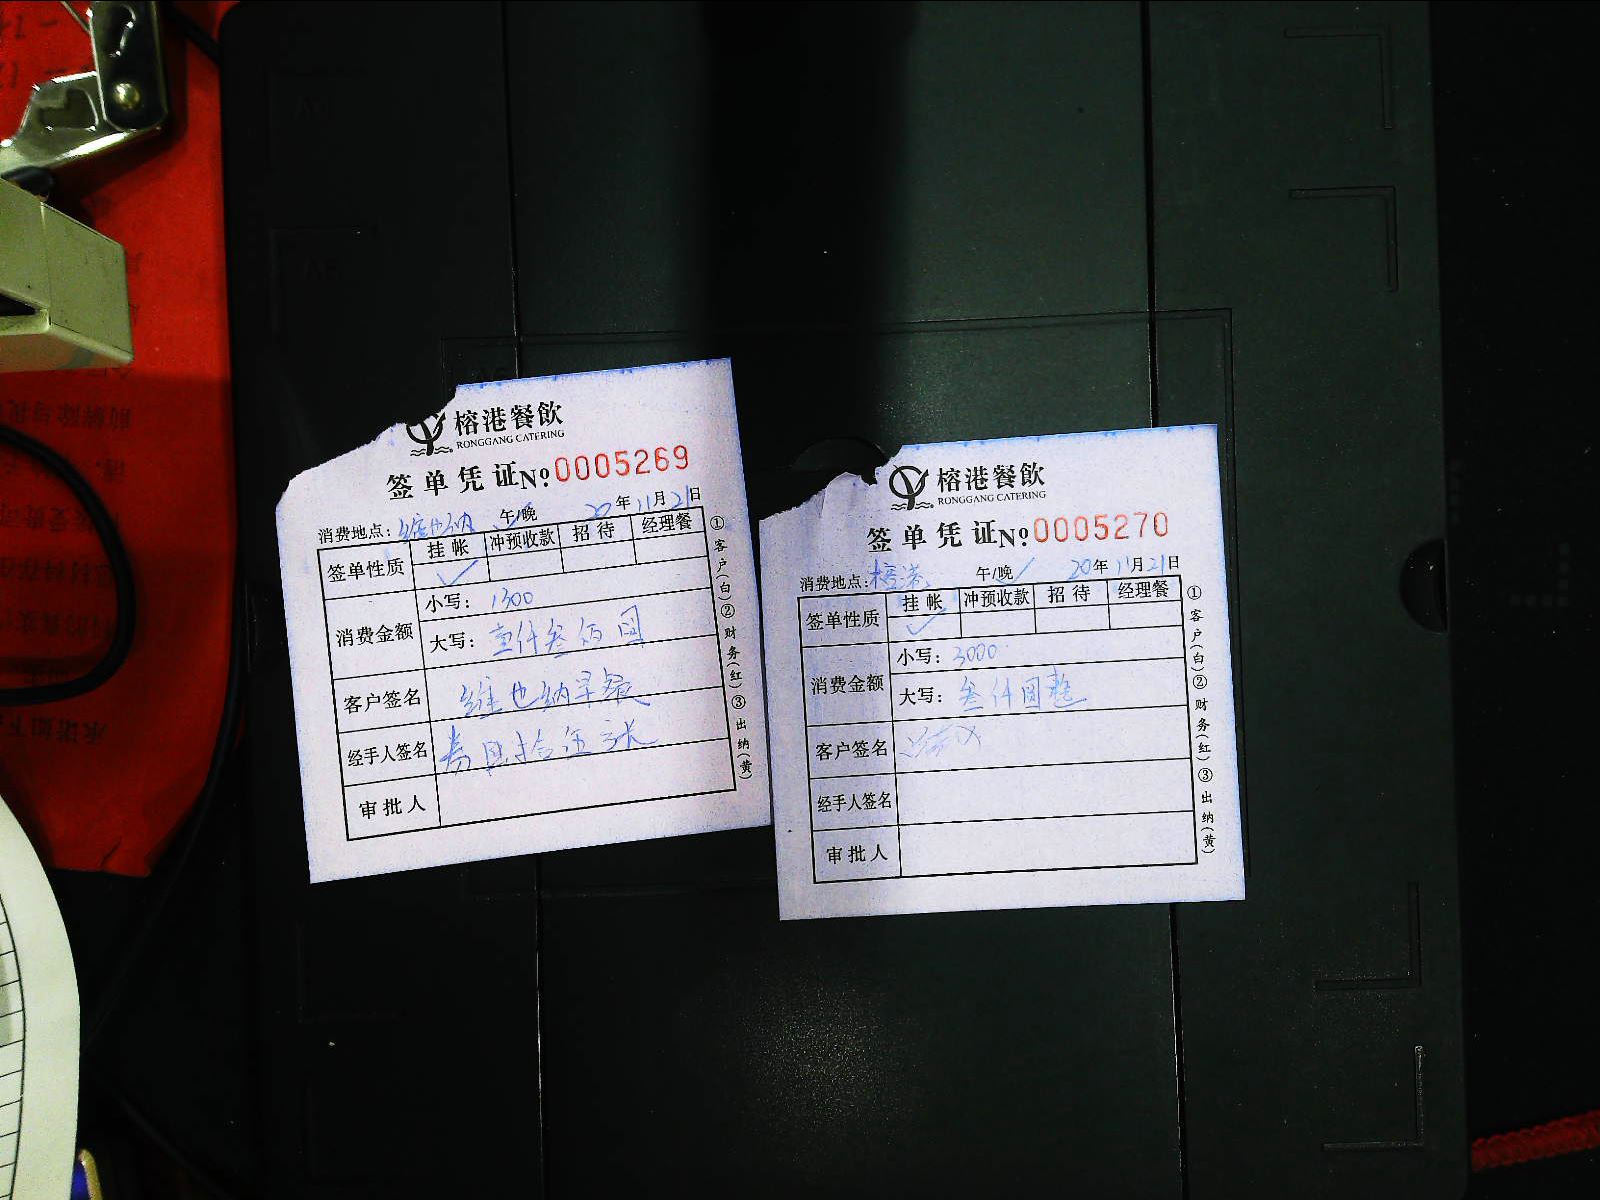 榕港餐飲
RONGGANG CATERING
签单凭证№0005269
消费地点：维也纳 午/晚 20年11月21日
签单性质 挂帐 冲预收款 招待 经理餐
消费金额 小写：1300
大写：壹仟叁佰圆
客户签名 维也纳早餐
经手人签名 券
审批人
①客户(白)②财务(红)③出纳(黄)
榕港餐飲
RONGGANG CATERING
签单凭证№0005270
消费地点：榕港 午/晚 20年11月21日
签单性质 挂帐 冲预收款 招待 经理餐
消费金额 小写：3000
大写：叁仟圆整
客户签名
经手人签名
审批人
①客户(白)②财务(红)③出纳(黄)